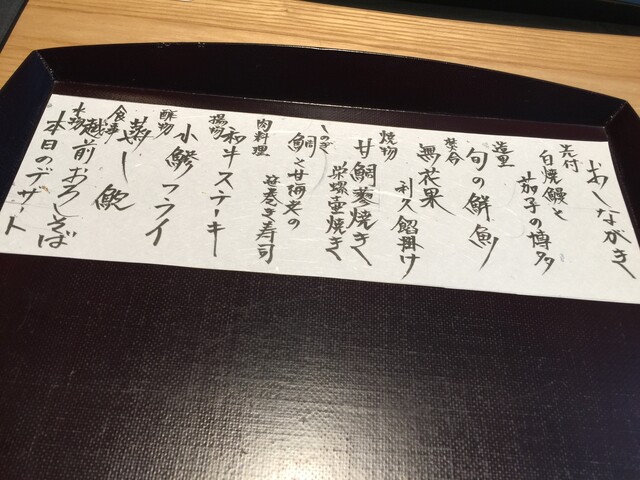 おしながき
先付
白焼鰻と
茄子の博多
造里
旬の鮮魚
焚合
無花果
利久餡掛け
焼物
甘鯛蓼焼き
栄螺壷焼き
しのぎ
鯛と甘海老の
笹巻き寿司
肉料理
和牛ステーキ
揚物
小鯵フライ
酢物
蒸し鮑
食事
越前おろしそば
水物
本日のデザート